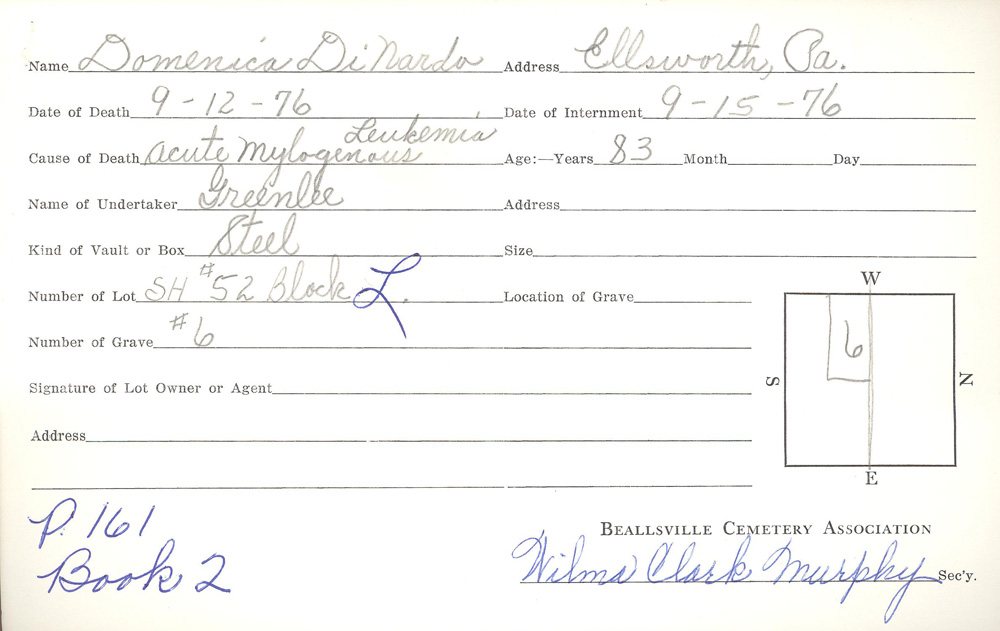 Name Domenica DiNardo Address Ellsworth, Pa.
Date of Death 9-12-76 Date of Internment 9-15-76
Leukemia
Cause of Death acute Mylogenous Age:—Years 83 Month Day
Name of Undertaker Greenlee Address
Kind of Vault or Box Steel Size
Number of Lot SH #52 Block L. Location of Grave
Number of Grave #6
W
6
S
N
E
Signature of Lot Owner or Agent
Address
P. 161
Book 2
BEALLSVILLE CEMETERY ASSOCIATION
Wilma Clark Murphy Sec'y.